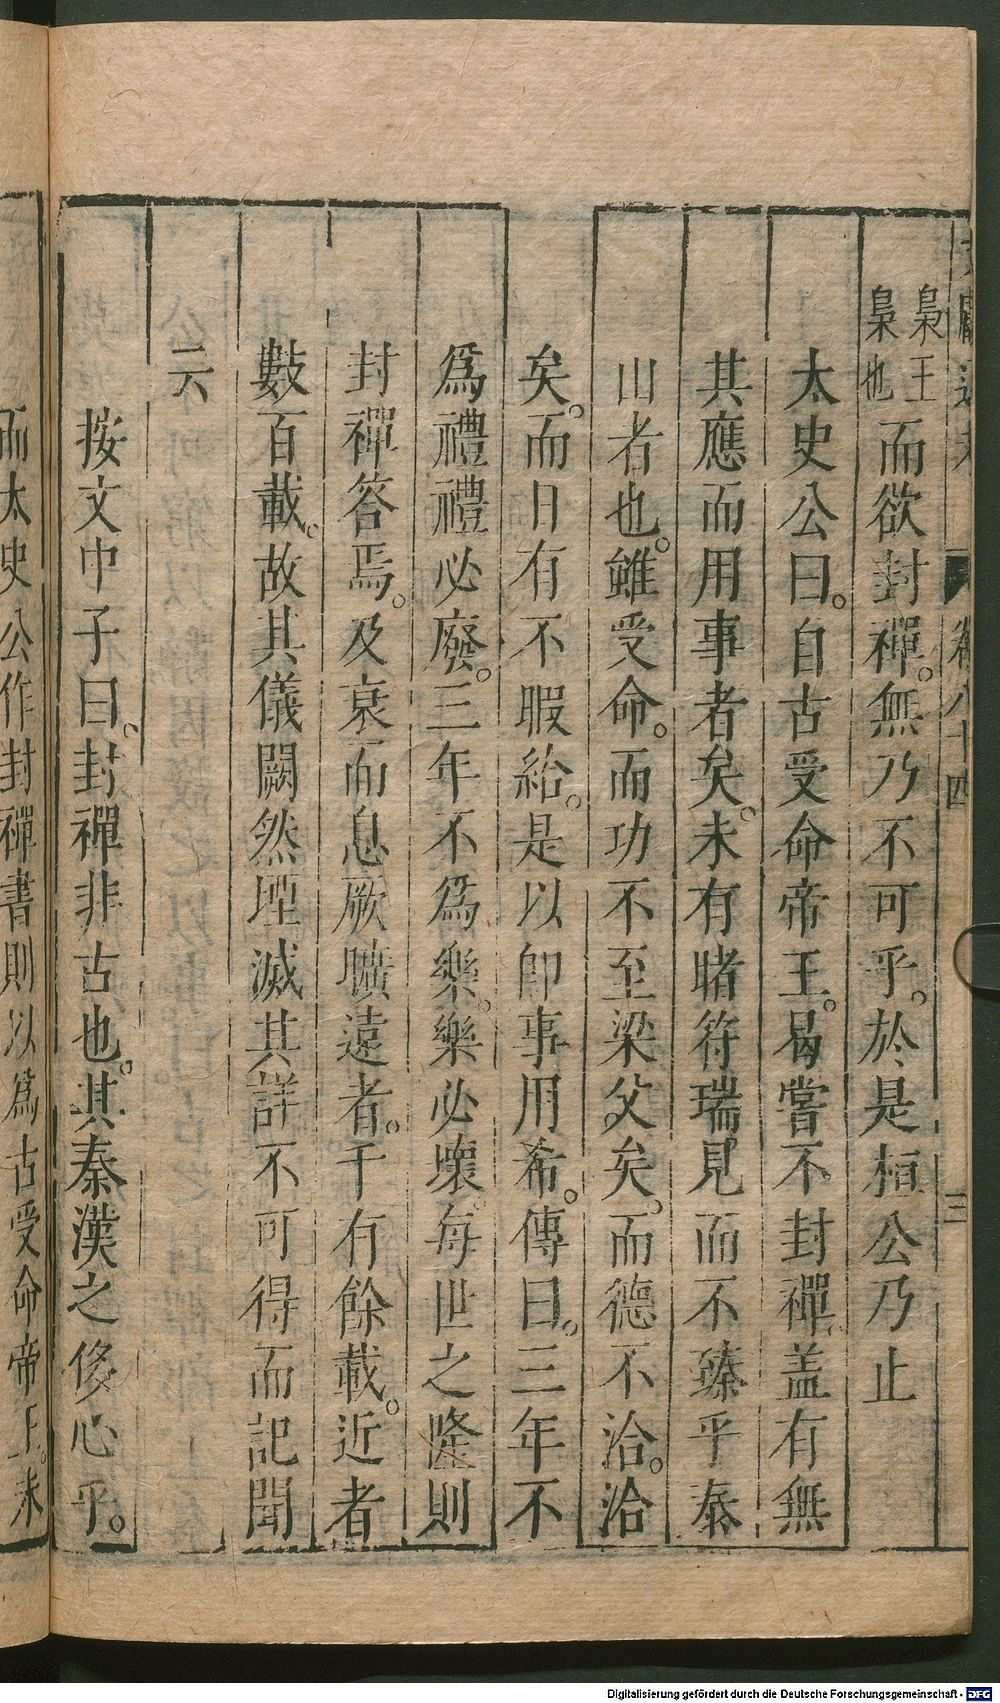 卷八十四
三
梟王
梟也
而欲封禪。無乃不可乎。於是桓公乃止
太史公曰。自古受命帝王。曷嘗不封禪。盖有無
其應而用事者矣。未有睹符瑞見而不臻乎泰
山者也。雖受命。而功不至梁父矣。而德不洽。洽
矣。而日有不暇給。是以卽事用希。傳曰。三年不
爲禮禮必廢。三年不爲樂。樂必壞。每世之隆則
封禪答焉。及衰而息厥曠遠者。千有餘載。近者
數百載。故其儀闕然堙滅其詳不可得而記聞
云
按文中子曰。封禪非古也。其秦漢之侈心乎。
而太史公作封禪書則以爲古受命帝王。未
Digitalisierung gefördert durch die Deutsche Forschungsgemeinschaft - DFG